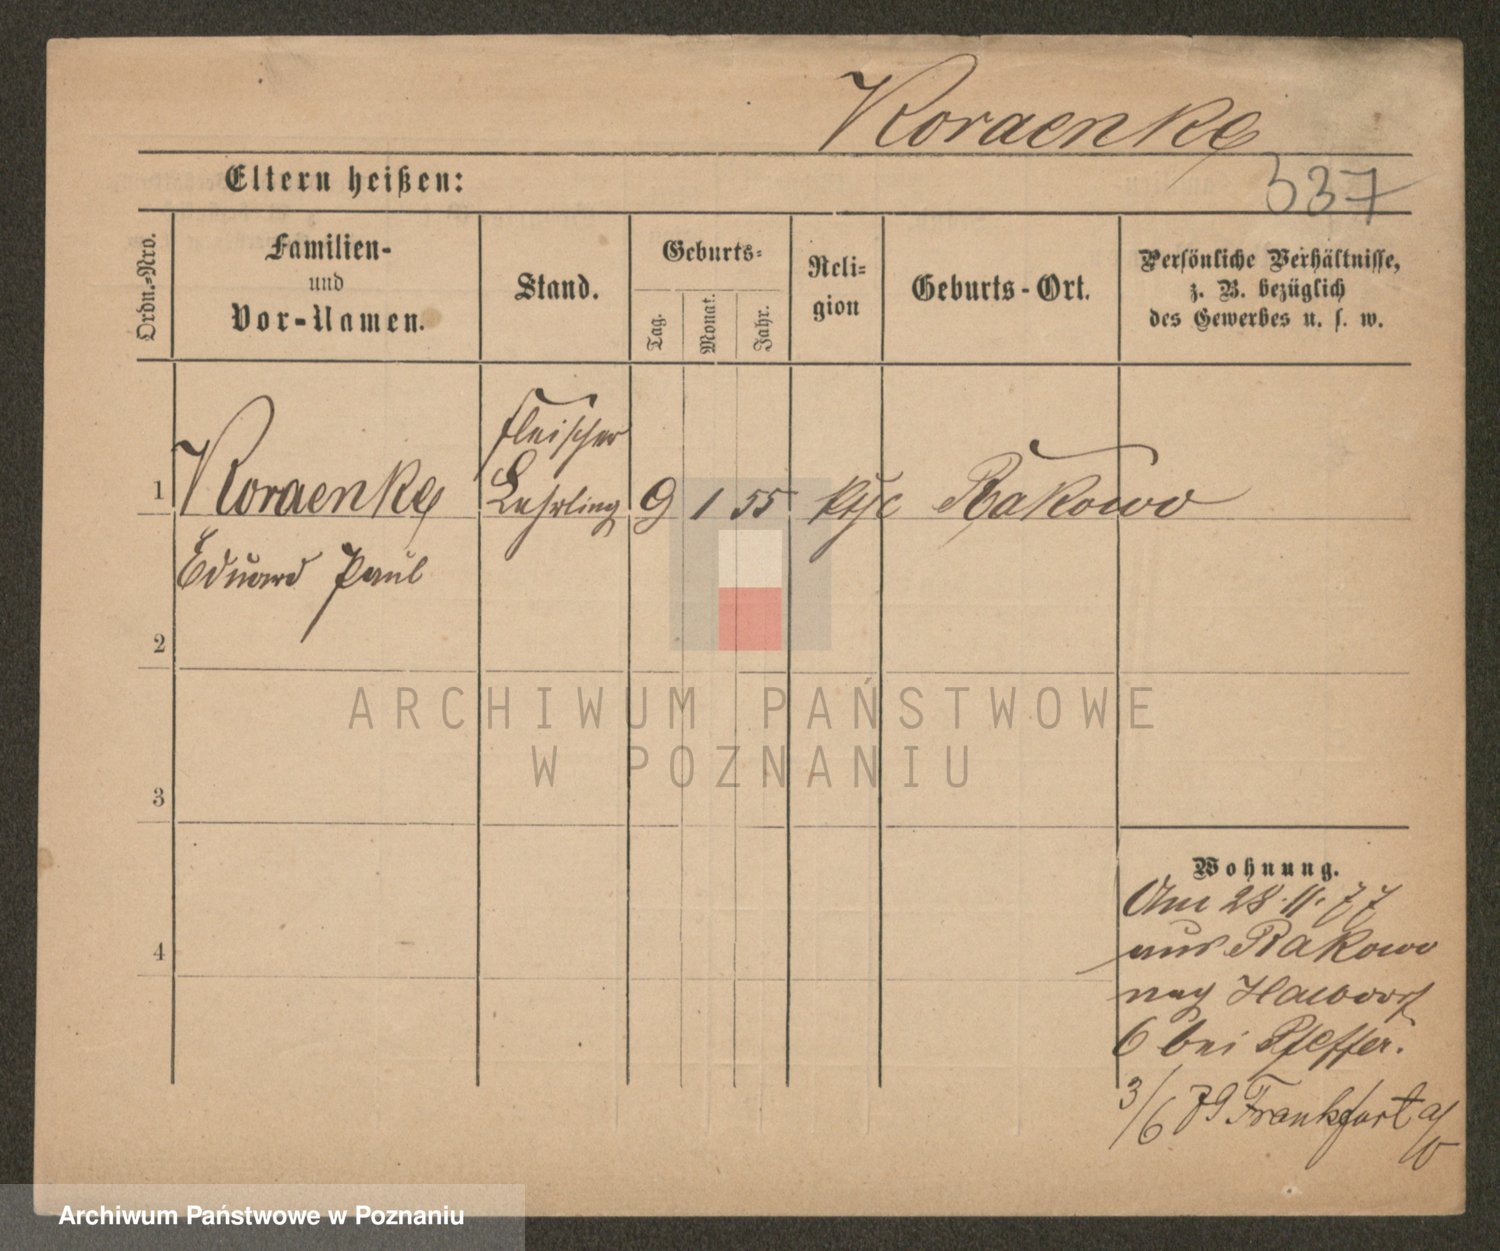 Koraenke
337
Eltern heißen:
Ordn.-Nro.
Familien-
und
Vor-Namen.
Stand.
Geburts-
Tag.
Monat.
Jahr.
Reli-
gion
Geburts-Ort.
Persönliche Verhältnisse,
z. B. bezüglich
des Gewerbes u. s. w.
1
Koraenke
Eduard Paul
Fleischer
Lehrling
9
1
55
kth
Rakowo
2
3
4
Wohnung.
Am 28.11.77
aus Rakowo
nach Halbdorf
6 bei Pfeffer.
3/6 79 Frankfurt a/O
ARCHIWUM PAŃSTWOWE
W POZNANIU
Archiwum Państwowe w Poznaniu